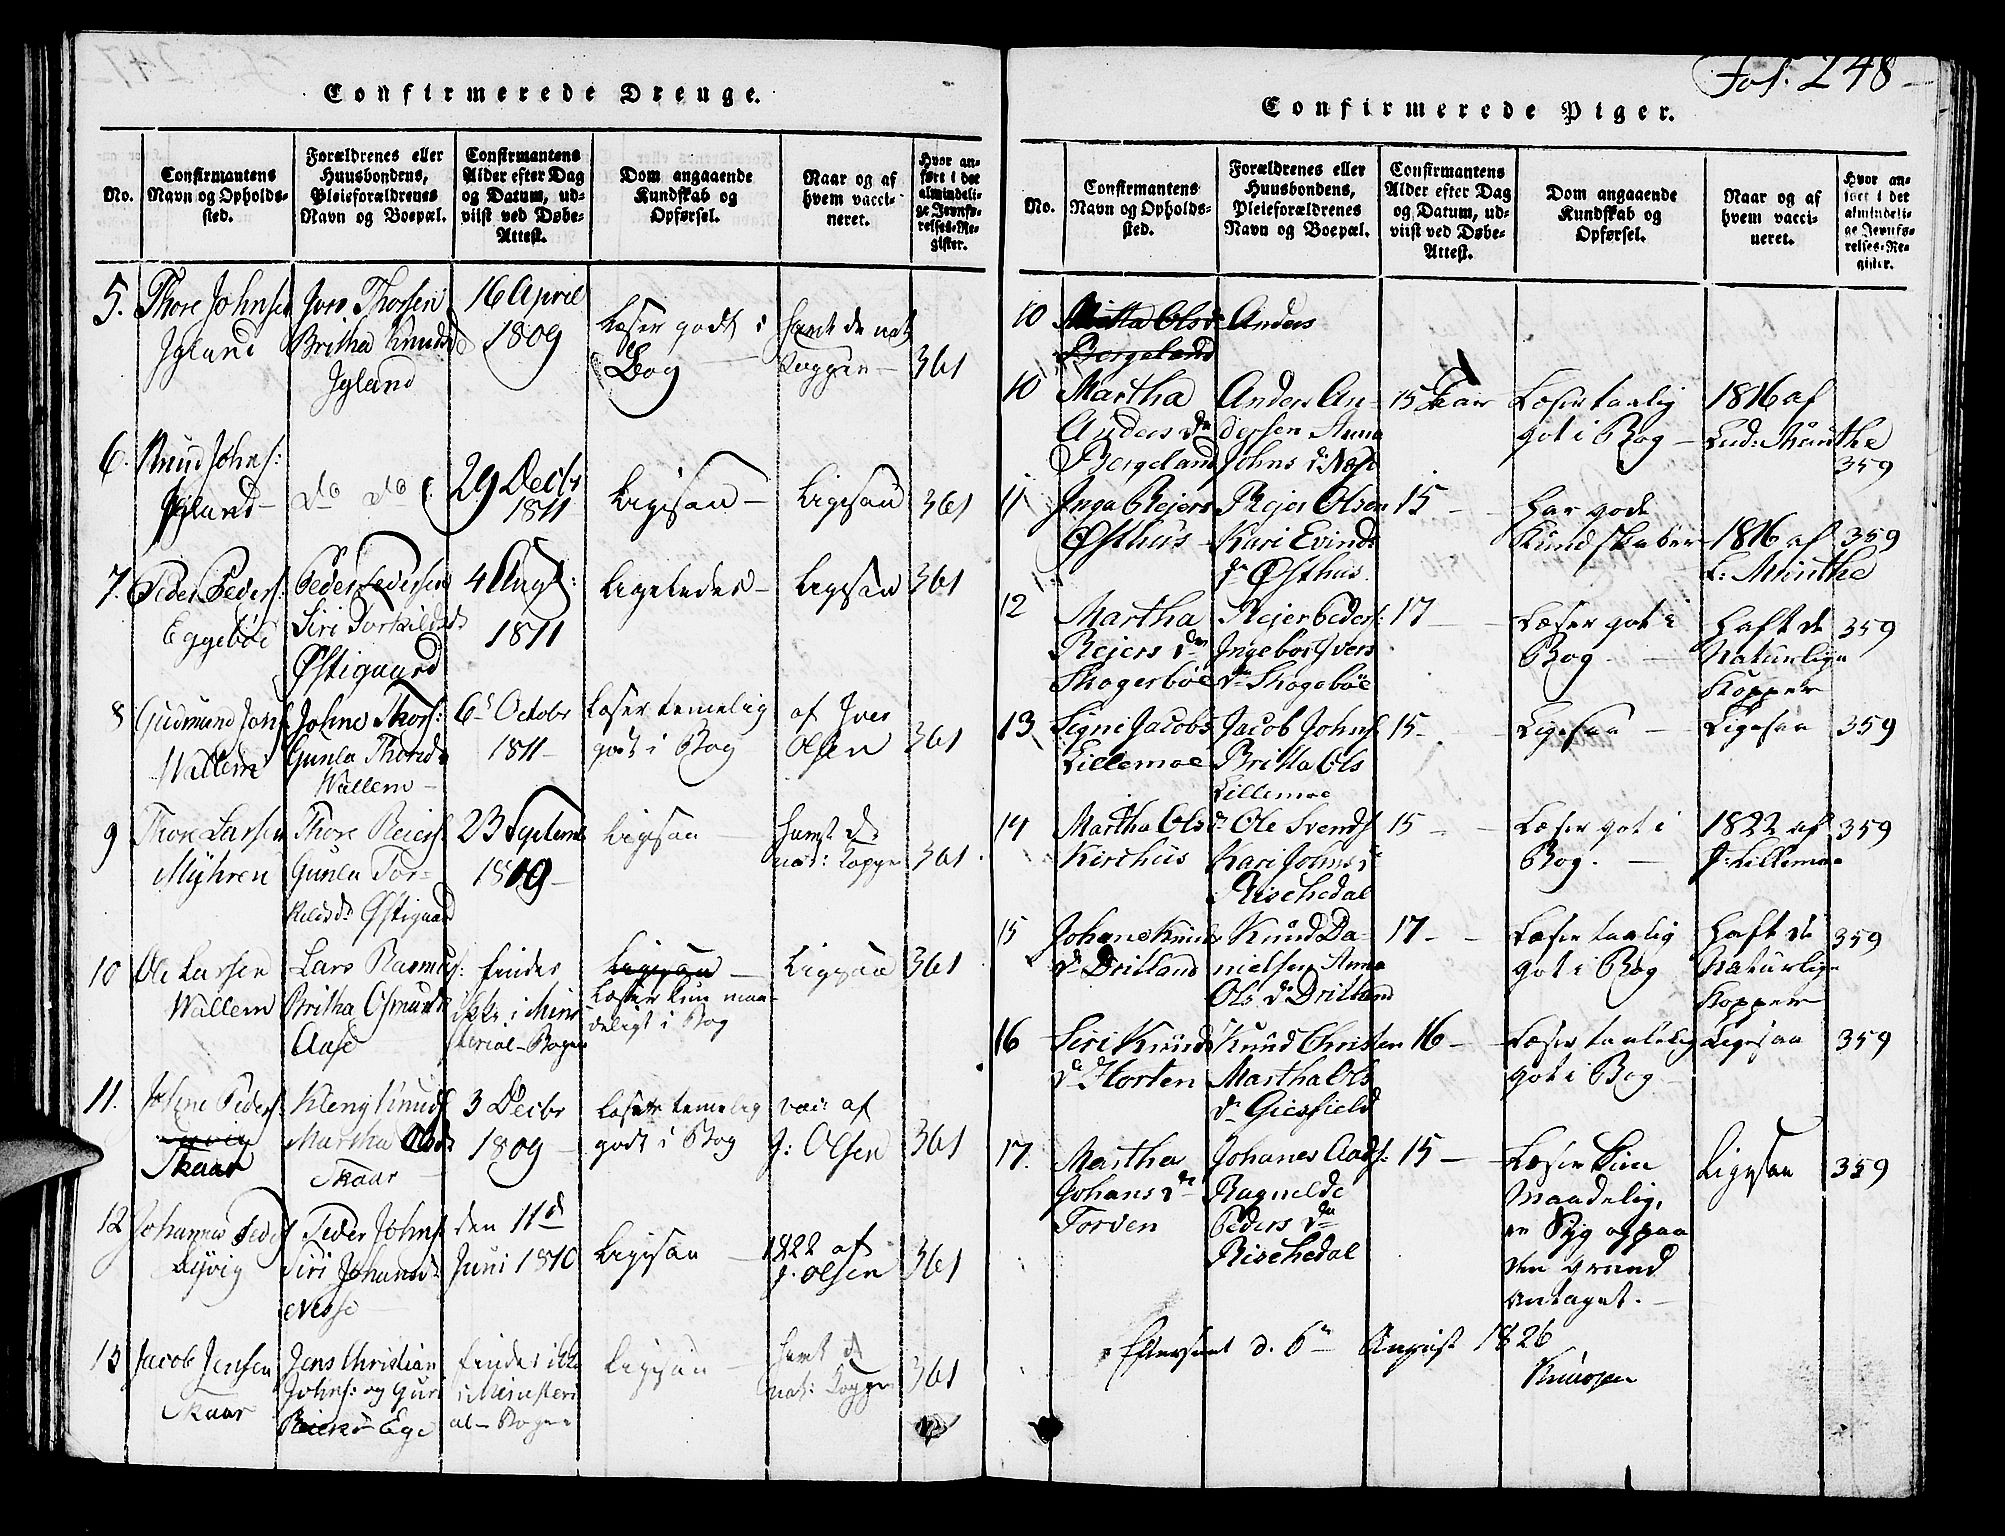 Confirmerede Drenge.
No.
Confirmantens
Navn og Opholds-
sted.
Forældrenes eller
Huusbondens,
Pleieforældrenes
Navn og Boepæl.
Confirmantens
Alder efter Dag
og Datum, ud-
viist ved Døbe-
Attest.
Dom angaaende
Kundskab og
Opførsel.
Naar og af
hvem vacci-
neret.
Hvor an-
ført i det
almindeli-
ge Jevnfø-
relses-Re-
gister.
5. Thore Johnsen
Igland
Thorsen
Britha Knudsd
Igland
16 April
1809
Læser godt i
Bog
havt de nat
Kopper
361
6. Knud Johns:
Igland
do do
29 Decbr
1811
Ligesaa
Ligesaa
361
7. Peder Peders:
Eggebøe
Peder Pedersen
Siri Torkildsd
Østigaard
4 Aug:
1811
Ligeledes
Ligesaa
361
8 Gudmund Jons
Wallem
Johne Thors:
Gunla Thords
Wallem
6 Octobr
1811
Læser temelig
godt i Bog
af Iver
Olsen
361
9 Thore Larsen
Myhren
Thore Reiers
Gunla Tor-
kelsd Østigaard
23 Septemb
1809
Ligesaa
havt de
nat: Kopper
361
10 Ole Larsen
Wallem
Lars Rasmus:
Britha Osmunds
Aase
findes
ikke i Mini
sterial-Bogen
Ligesaa
Læser kun maa-
deligt i Bog
Ligesaa
361
11. Johne Peders
Skaar
Kleng Knuds
Martha Olsd
Skaar
3 Decbr
1809
Læser temelig
godt i Bog
vac: af
J: Olsen
361
12 Johannes Peders
Lyvig
Peder Johns
Siri Johannsd
Nesse
den 11d
Juni 1810
Ligesaa
1822 af
J. Olsen
361
13 Jacob Jensen
Skaar
Jens Christian
Johns: og Guri
Reiersd Ege
findes ikke
i Ministeri
al-Bogen
Ligesaa
havt d
nat: Kopper
361
Fol. 248
Confirmerede Piger.
No.
Confirmantens
Navn og Opholds-
sted.
Forældrenes eller
Huusbondens,
Pleieforældrenes
Navn og Boepæl.
Confirmantens
Alder efter Dag
og Datum, ud-
viist ved Døbe-
Attest.
Dom angaaende
Kundskab og
Opførsel.
Naar og af
hvem vacci-
neret.
Hvor an-
ført i det
almindeli-
ge Jevnfø-
relses-Re-
gister.
10 Mitta Ols dr
Bergeland
Anders
10 Martha
Anders dr
Bergeland
Anders An-
dersen Anna
Johns d
15 Aar
Læser taalig
got i Bog
1816 af
Lud: Munthe
359
11 Inga Reiers
Østhus
Rejer Olsen
Kari Evinds
dr Østhus
15
Har gode
Kundskaber
1816 af
L: Munthe
359
12 Martha
Rejers dr
Skogerbøe
Reier Peders:
Ingebor Ivers
dr Skogebøe
17
Læser got i
Bog.
Haft de
Naturlige
Kopper
359
13 Signi Jacobs
Lillemoe
Jacob Johns
Britta Ols
Lillemoe
15
Ligesaa
Ligesaa
359
14 Martha Ols dr
Kirchus
Ole Svends
Kari Johns dr
Rischedal
15
Læser got i
Bog.
1822 af
J: Lillemoe
359
15 Johane Knuds
dr Dritland
Knud Da-
nielsen Anna
Ols dr Dritland
17
Læser taalig
got i Bog
Haft de
Naturlige
Kopper
359
16 Siri Knuds
dr Horten
Knud Christen
Martha Ols
dr Giesfield
16
Læser taalelig
got i Bog
Ligesaa
359
17. Martha
Johans dr
Torven
Johanes Aads:
Ragnelde
Peders dr
Rischedal
15
Læser kun
Maadelig,
en Syg og paa
den Grund
antaget.
Ligesaa
359
Efterseet d. 6te August 1826